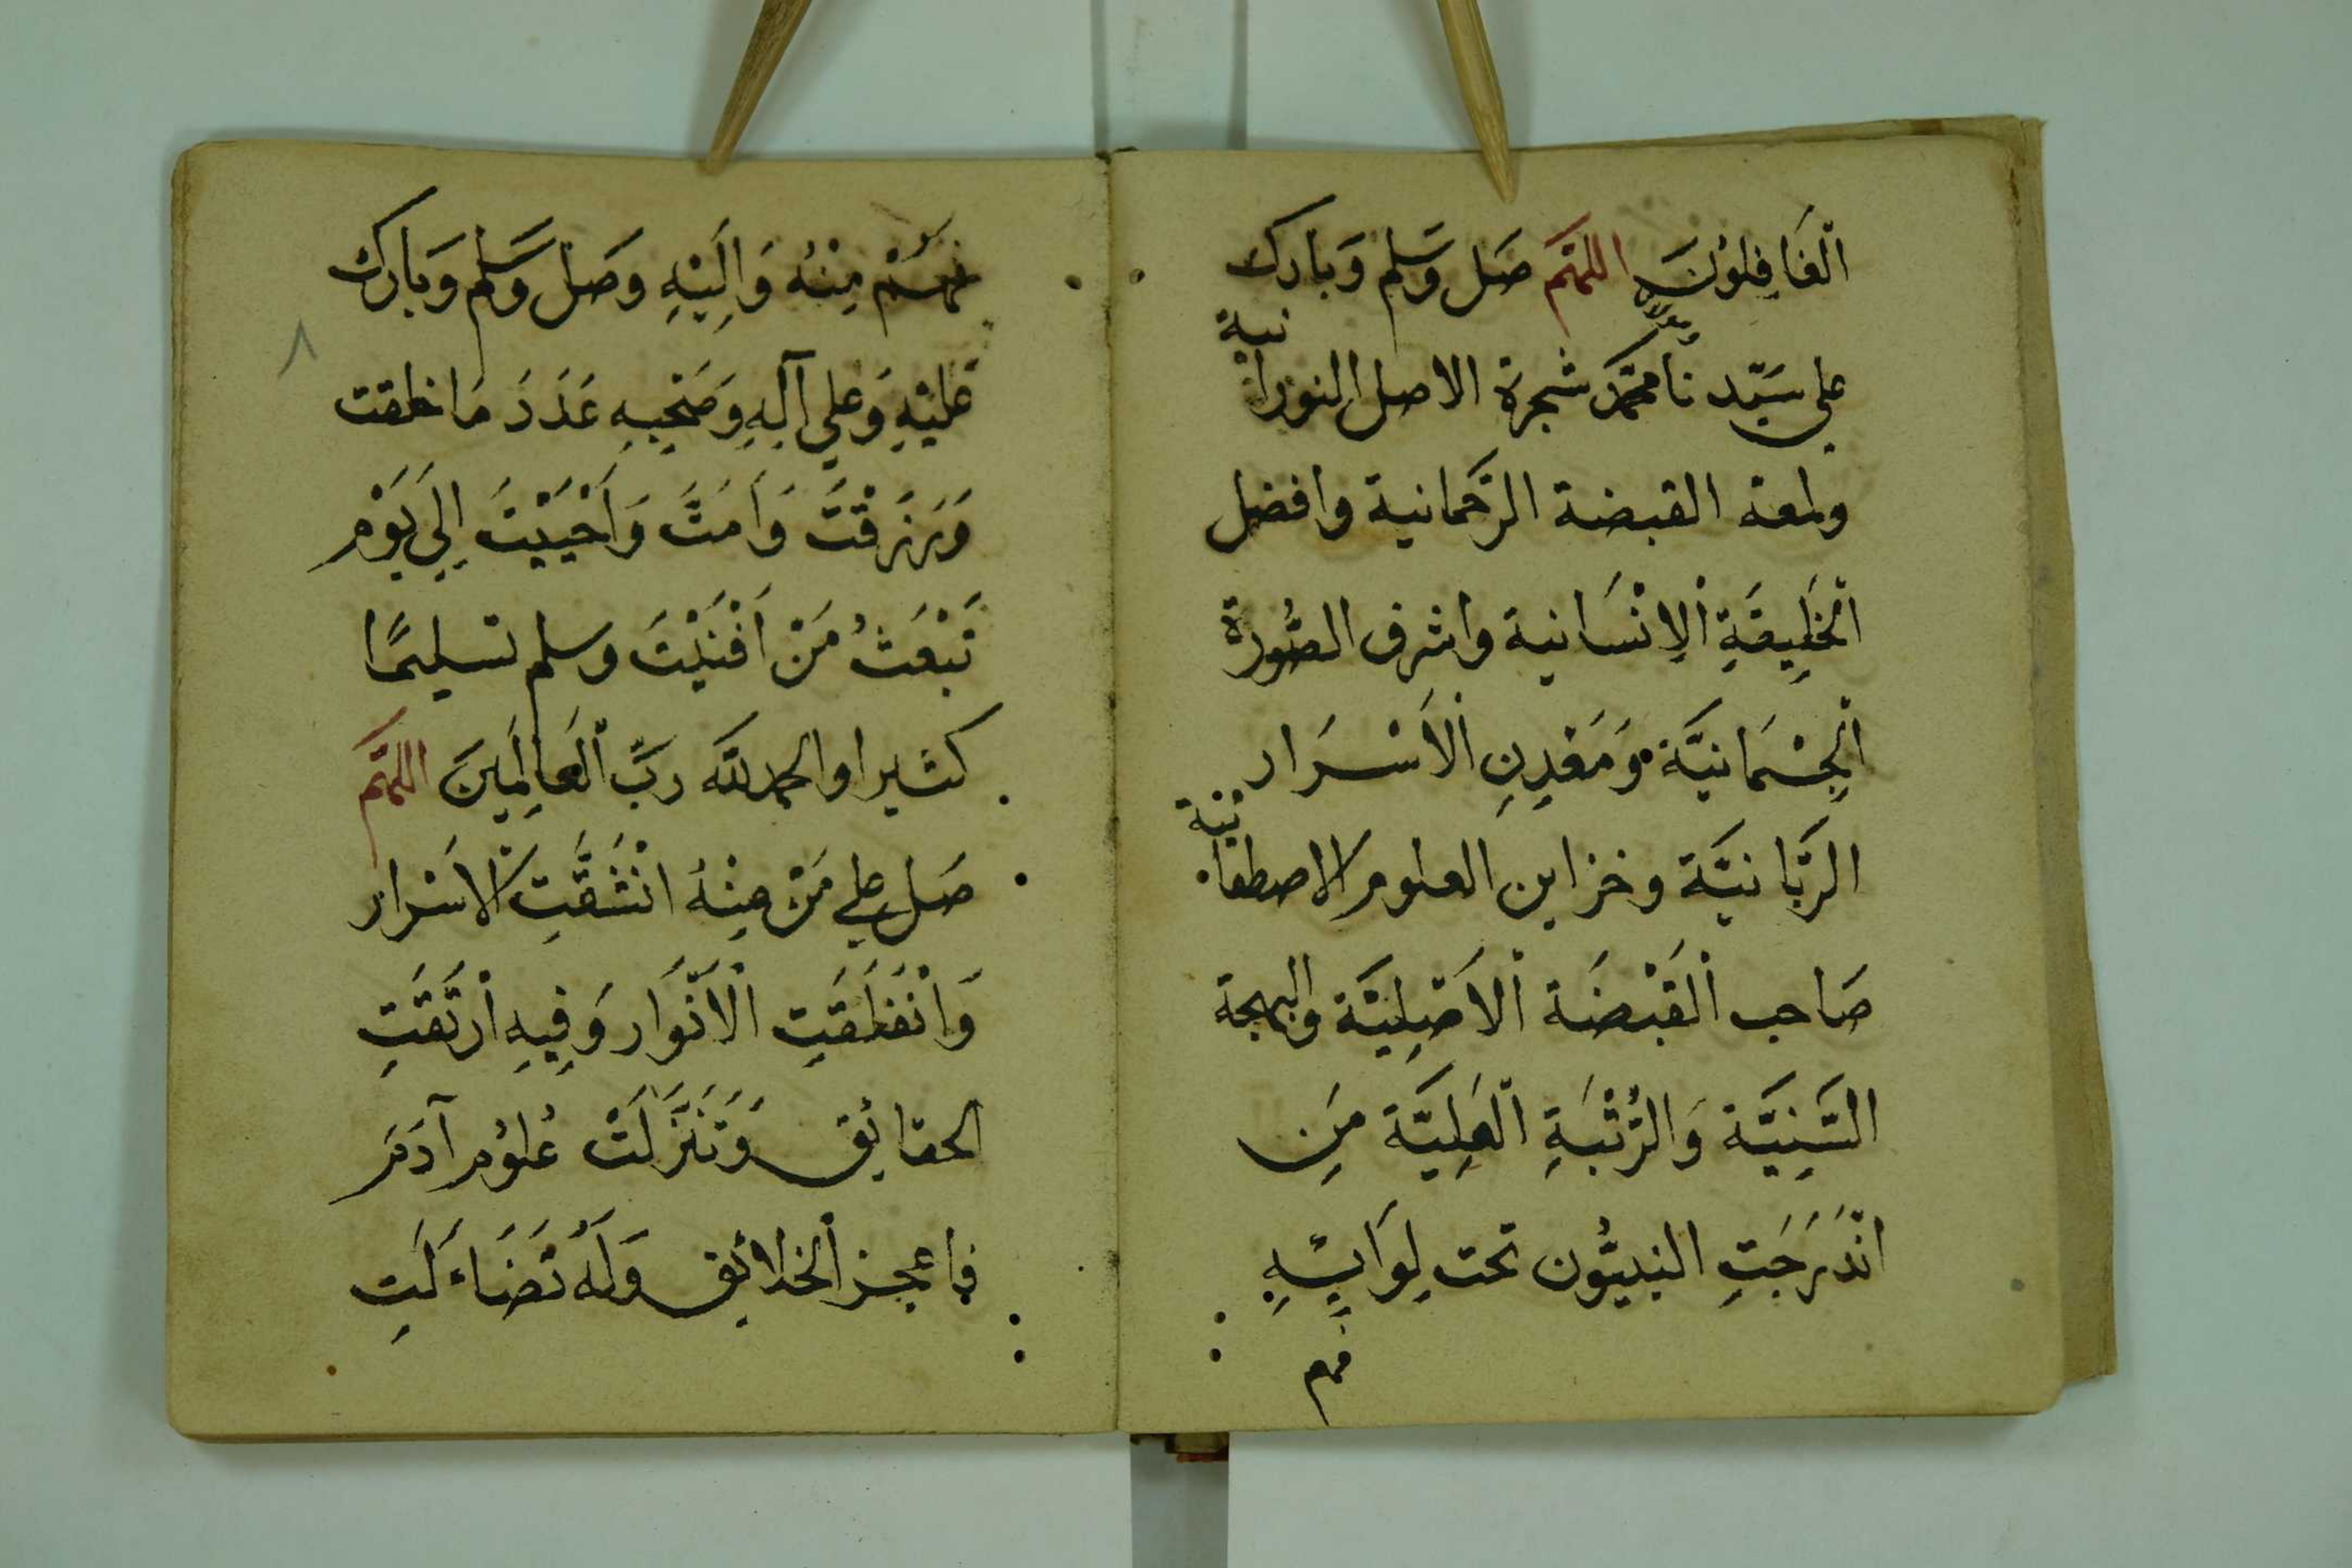 ٱلْغَافِلُوْنَ اللهم صَل وَسَلم وَبَارك
علي سَيّد نَا ومولانا محمّد شجرة الاصل النورانية
ولمعة القبضة الرَّحمانية وافضل
ٱلخَلِيقَةِ ٱلاِنْسَانية واشرف الصُّورة
ٱلجِسْمَانيَّة وَمَعْدِنِ ٱلاَسْرَار
الرَّبَّانيَّة وخزاين العلوم الاصطفائية
صَاحب ٱلقَبْضَة ٱلاَصْلِيَّة والبهجة
السَّنِيَّة وَالرُّتْبَةِ ٱلعَلِيَّة مَنِ
انْدَرَجَتِ النبيُّون تحت لِوَايِٕهِ
فهم
فهُمْ مِنْهُ وَاِلَيْهِ وَصَل وَسَلم وَبَارك
عَليْهِ وَعلي آلِهِ وَصَحْبِهِ عَدَدَ مَا خلقت
وَرَزَقْتَ وَاَمَتَّ وَاَحْيَيْتَ اِلَي يَوْمِ
تَبْعَثُ مَنْ اَفْنَيْتَ وسلم تسليمًا
كثيرا والحمد لله رَبّ ٱلعَالَمِينَ اللهم
صَل علي مَنْ مِنْهُ انْشَقَّتِ الاَسْرار
وَانْفَلَقَتِ الْاَنْوَار وَفِيهِ ارْتَقَتِ
الحقائِق وَتَنَزَّلَتْ عُلوُم آدَمَ
فاعجز ٱلخلائِق وَلَهُ تَضَاءَلَتِ
٨